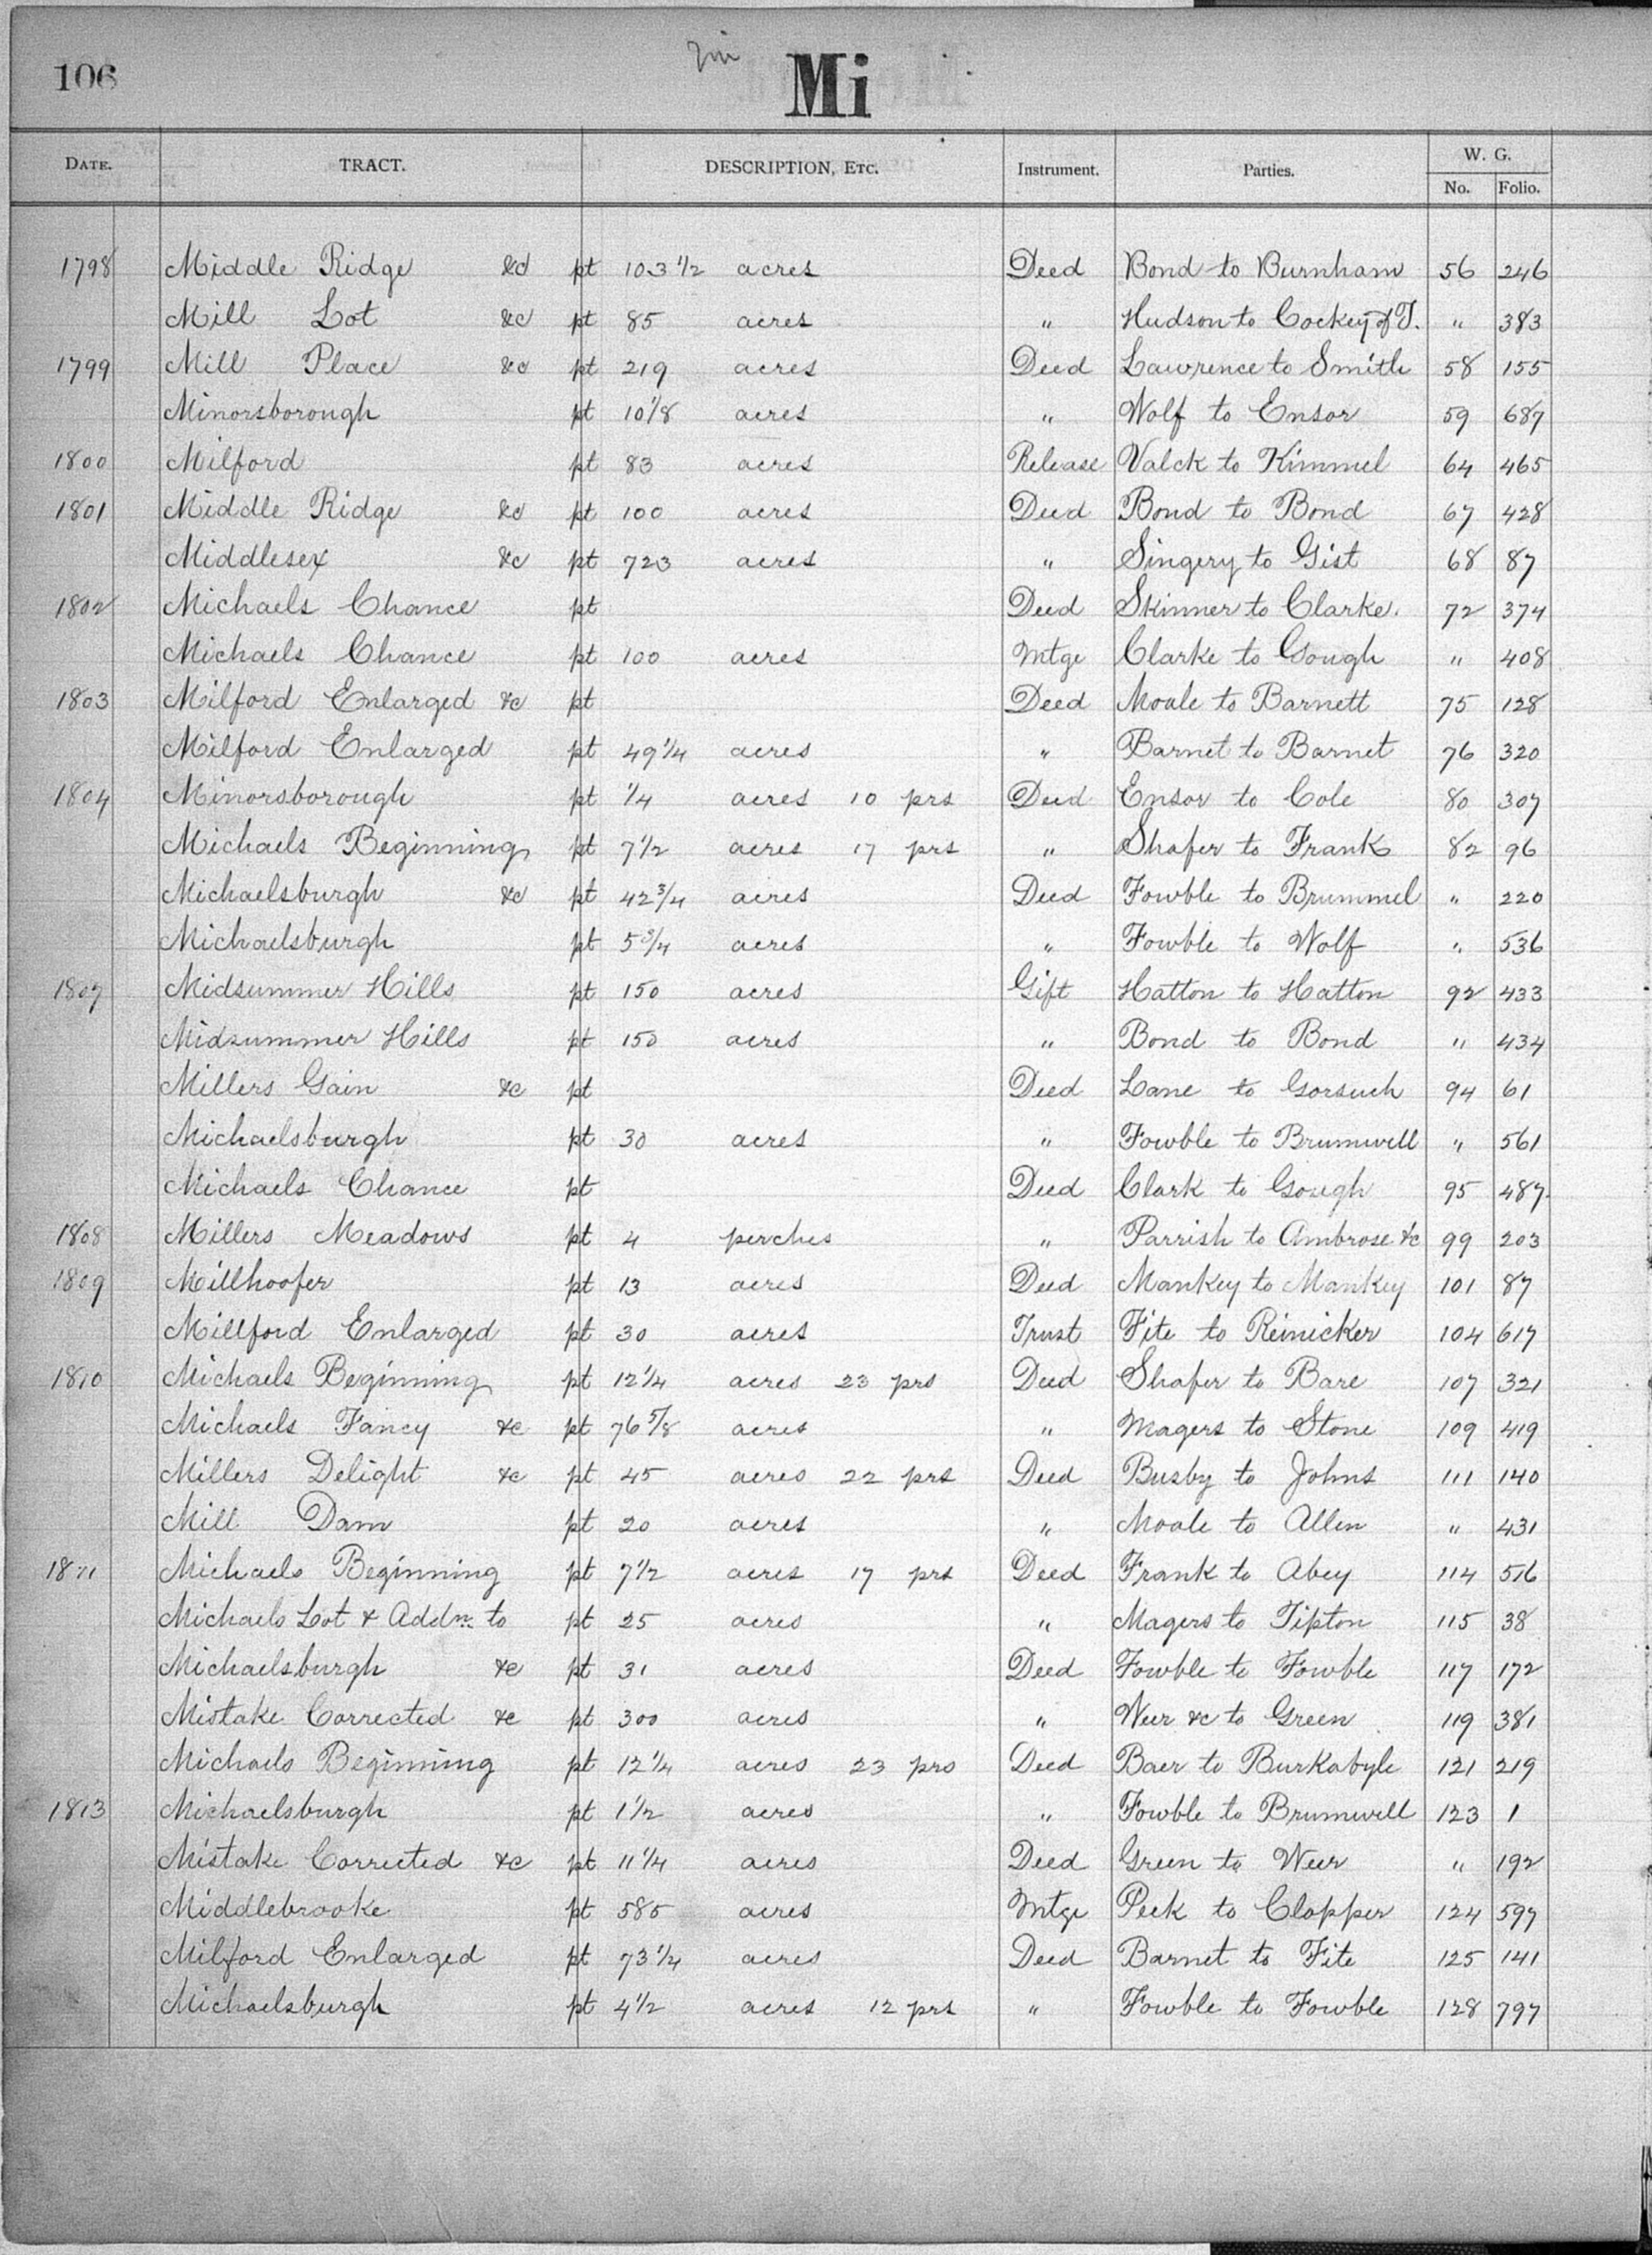 106
Mi
DATE. TRACT. DESCRIPTION, ETC. Instrument. Parties. W. G.
No. Folio.
1798 Middle Ridge &c pt 103 1/2 acres Deed Bond to Burnham 56 246
Mill Lot &c pt 85 acres " Hudson to Cockey of T. " 383
1799 Mill Place &c pt 219 acres Deed Lawrence to Smith 58 155
Minorsborough pt 10 1/8 acres " Wolf to Ensor 59 687
1800 Milford pt 83 acres Release Valck to Kimmel 64 465
1801 Middle Ridge &c pt 100 acres Deed Bond to Bond 67 428
Middlesex &c pt 723 acres " Singery to Gist 68 87
1802 Michaels Chance pt Deed Skinner to Clarke. 72 374
Michaels Chance pt 100 acres Mtge Clarke to Gough " 408
1803 Milford Enlarged &c pt Deed Moale to Barnett 75 128
Milford Enlarged pt 49 1/4 acres " Barnet to Barnet 76 320
1804 Minorsborough pt 1/4 acres 10 prs Deed Ensor to Cole 80 307
Michaels Beginning pt 7 1/2 acres 17 prs " Shafer to Frank 82 96
Michaelsburgh &c pt 42 3/4 acres Deed Fowble to Brummel " 220
Michaelsburgh pt 5 3/4 acres " Fowble to Wolf " 536
1807 Midsummer Hills pt 150 acres Gift Hatton to Hatton 92 433
Midsummer Hills pt 150 acres " Bond to Bond " 434
Millers Gain &c pt Deed Lane to Gorsuch 94 61
Michaelsburgh pt 30 acres " Fowble to Brumwell " 561
Michaels Chance pt Deed Clark to Gough 95 487
1808 Millers Meadows pt 4 perches " Parrish to Ambrose &c 99 203
1809 Millhoofer pt 13 acres Deed Mankey to Mankey 101 87
Millford Enlarged pt 30 acres Trust Fite to Reinicker 104 617
1810 Michaels Beginning pt 12 1/4 acres 23 prs Deed Shafer to Bare 107 321
Michaels Fancy &c pt 76 5/8 acres " Magers to Stone 109 419
Millers Delight &c pt 45 acres 22 prs Deed Busby to Johns 111 140
Mill Dam pt 20 acres " Moale to Allen " 431
1811 Michaels Beginning pt 7 1/2 acres 17 prs Deed Frank to Abey 114 516
Michaels Lot & Addn. to pt 25 acres " Magers to Tipton 115 38
Michaelsburgh &c pt 31 acres Deed Fowble to Fowble 117 172
Mistake Corrected &c pt 300 acres " Weer &c to Green 119 381
Michaels Beginning pt 12 1/4 acres 23 prs Deed Baer to Burkabyle 121 219
1813 Michaelsburgh pt 1 1/2 acres " Fowble to Brumwell 123 1
Mistake Corrected &c pt 11 1/4 acres Deed Green to Weer " 192
Middlebrooke pt 585 acres Mtge Peck to Clopper 124 597
Milford Enlarged pt 73 1/4 acres Deed Barnet to Fite 125 141
Michaelsburgh pt 4 1/2 acres 12 prs " Fowble to Fowble 128 797